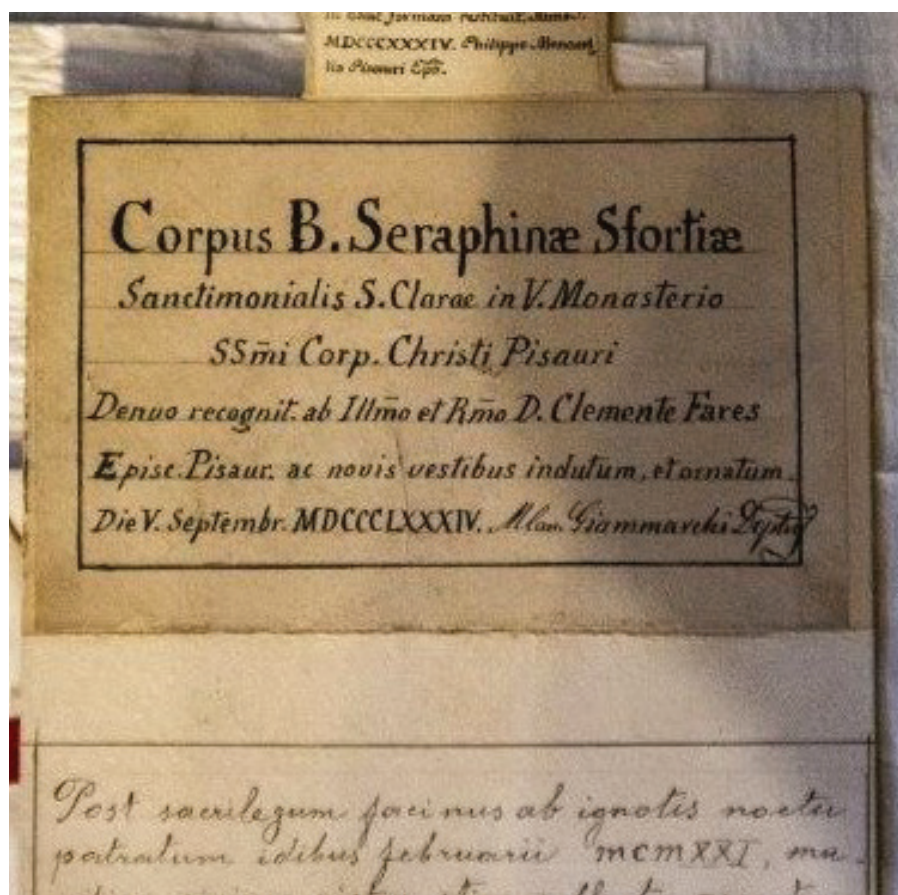 in hanc formam restituit Anno
MDCCCXXXIV. Philippo Monacel
lio Pisauri Epõ.
Corpus B. Seraphinæ Sfortiæ
Sanctimonialis S. Clarae in V. Monasterio
SSm̃i Corp. Christi Pisauri
Denuo recognit. ab Illm̃o et Rm̃o D. Clemente Fares
Episc. Pisaur. ac novis vestibus indutum, et ornatum.
Die V. Septembr. MDCCCLXXXIV. Giammarchi
Post sacrilegum facinus ab ignotis noctu
patratum idibus februarii MCMXXI, ma